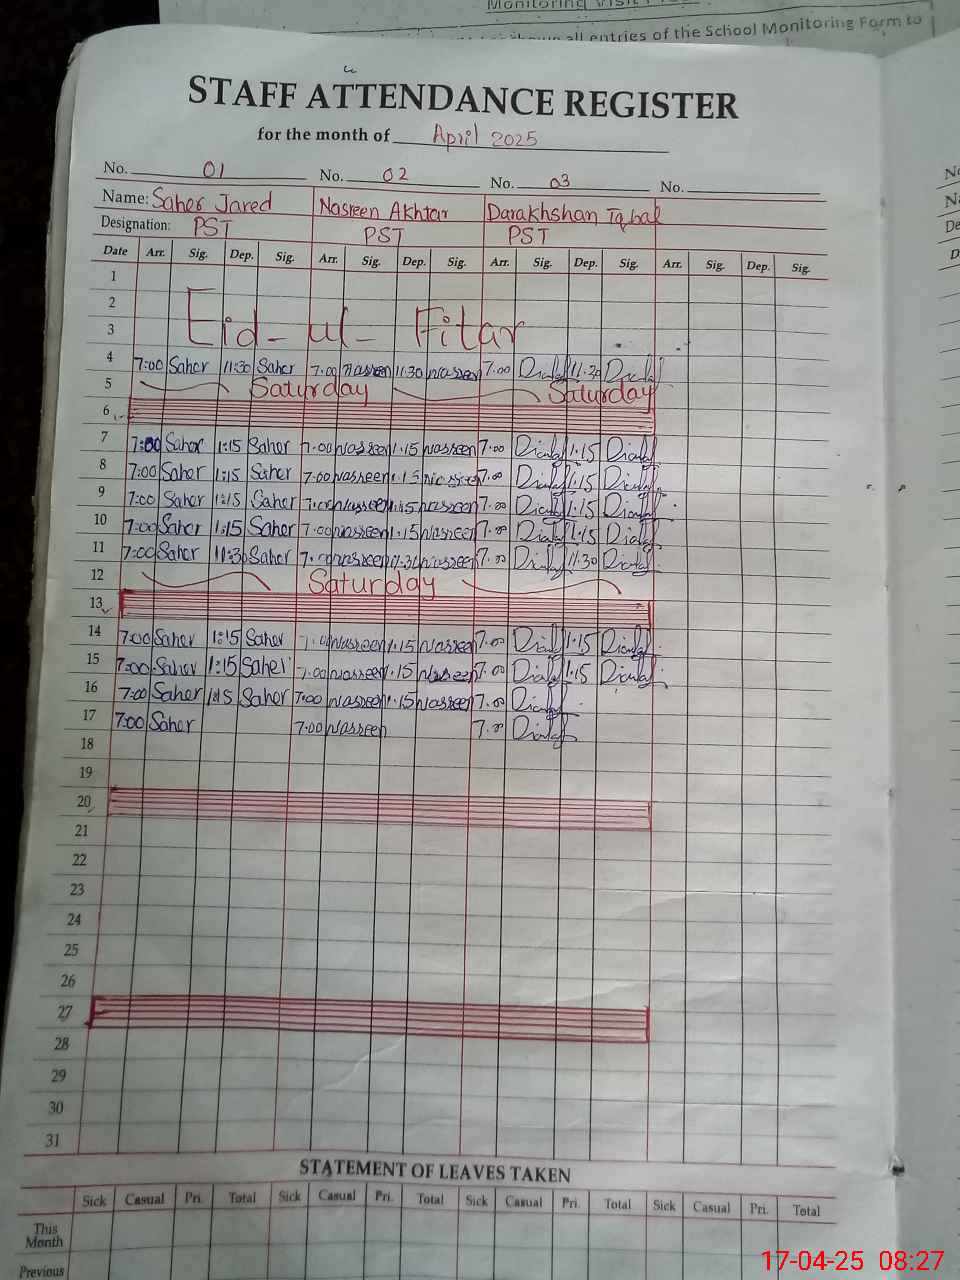 Monitoring Visit
all entries of the School Monitoring Form to
STAFF ATTENDANCE REGISTER
for the month of April 2025
No. 01 No. 02 No. 03 No.
Name: Saher Javed Nasreen Akhtar Darakhshan Iqbal
Designation: PST PST PST
Date Arr. Sig. Dep. Sig. Arr. Sig. Dep. Sig. Arr. Sig. Dep. Sig. Arr. Sig. Dep. Sig.
1
2
3 Eid-ul-Fitar
4 7:00 Saher 11:30 Saher 7.00 Nasreen 11.30 Nasreen 7.00 11.30
5 Saturday Saturday
6
7 7:00 Saher 1:15 Saher 7.00 Nasreen 1.15 Nasreen 7.00 1.15
8 7:00 Saher 1:15 Saher 7.00 Nasreen 1.15 Nasreen 7.00 1.15
9 7:00 Saher 1:15 Saher 7.00 Nasreen 1.15 Nasreen 7.00 1.15
10 7:00 Saher 1:15 Saher 7.00 Nasreen 1.15 Nasreen 7.00 1.15
11 7:00 Saher 11:30 Saher 7.00 Nasreen 11.30 Nasreen 7.00 11.30
12 Saturday
13
14 7:00 Saher 1:15 Saher 7.00 Nasreen 1.15 Nasreen 7.00 1.15
15 7:00 Saher 1:15 Saher 7.00 Nasreen 1.15 Nasreen 7.00 1.15
16 7:00 Saher 1:15 Saher 7:00 Nasreen 1.15 Nasreen 7.00
17 7:00 Saher 7.00 Nasreen 7.00
18
19
20
21
22
23
24
25
26
27
28
29
30
31
STATEMENT OF LEAVES TAKEN
Sick Casual Pri. Total Sick Casual Pri. Total Sick Casual Pri. Total Sick Casual Pri. Total
This Month
Previous
17-04-25 08:27